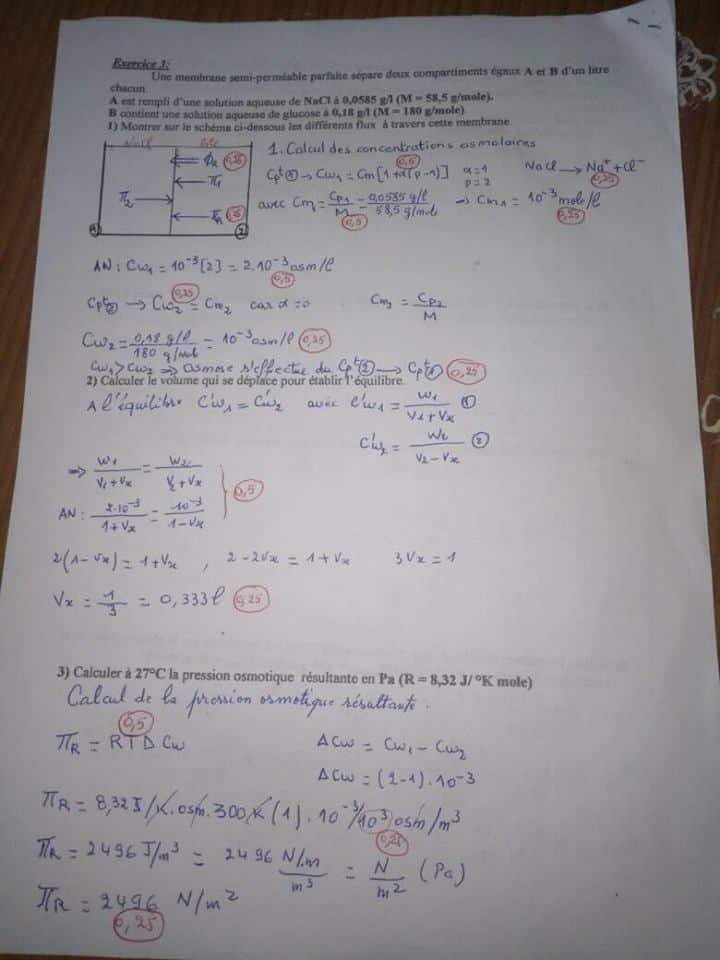 Exercice 3:
Une membrane semi-perméable parfaite sépare deux compartiments égaux A et B d'un litre
chacun
A est rempli d'une solution aqueuse de NaCl à 0,0585 g/l (M = 58,5 g/mole).
B contient une solution aqueuse de glucose à 0,18 g/l (M = 180 g/mole)
1) Montrer sur le schéma ci-dessous les différents flux à travers cette membrane.
NaCl
ΦR 0,25
π1
π2
πR 0,25
1 2
1. Calcul des concentrations osmolaires
0,5
Cpt① → Cw1 = Cm[1+α(p-1)] α=1 p=2 NaCl → Na⁺ + Cl⁻
0,25
avec Cm1 = Cp1/M = 0,0585 g/l / 58,5 g/mole ⇒ Cm1 = 10⁻³ mole/l
0,5 0,25
AN : Cw1 = 10⁻³[2] = 2.10⁻³ osm/l
0,5
0,25
Cpt② → Cw2 = Cm2 car α=0 Cm2 = Cp2/M
Cw2 = 0,18 g/l / 180 g/mol = 10⁻³ osm/l 0,25
Cw1 > Cw2 ⇒ osmose s'effectue du Cpt② → Cpt① 0,25
2) Calculer le volume qui se déplace pour établir l'équilibre.
A l'équilibre C'w1 = C'w2 avec C'w1 = w1/(V1+Vx) ①
C'w2 = w2/(V2-Vx) ②
⇒ w1/(V1+Vx) = w2/(V2+Vx)
0,5
AN : 2.10⁻³/(1+Vx) = 10⁻³/(1-Vx)
2(1-Vx) = 1+Vx , 2-2Vx = 1+Vx 3Vx = 1
Vx = 1/3 = 0,333 l 0,25
3) Calculer à 27°C la pression osmotique résultante en Pa (R = 8,32 J/ °K mole)
Calcul de la pression osmotique résultante.
0,5
πR = RTΔCw ΔCw = Cw1 - Cw2
ΔCw = (2-1).10⁻³
πR = 8,32 J/K.osm.300 K (1).10⁻³/10³ osm/m³
0,25
πR = 2496 J/m³ = 2496 N.m/m³ = N/m² (Pa)
πR = 2496 N/m²
0,25